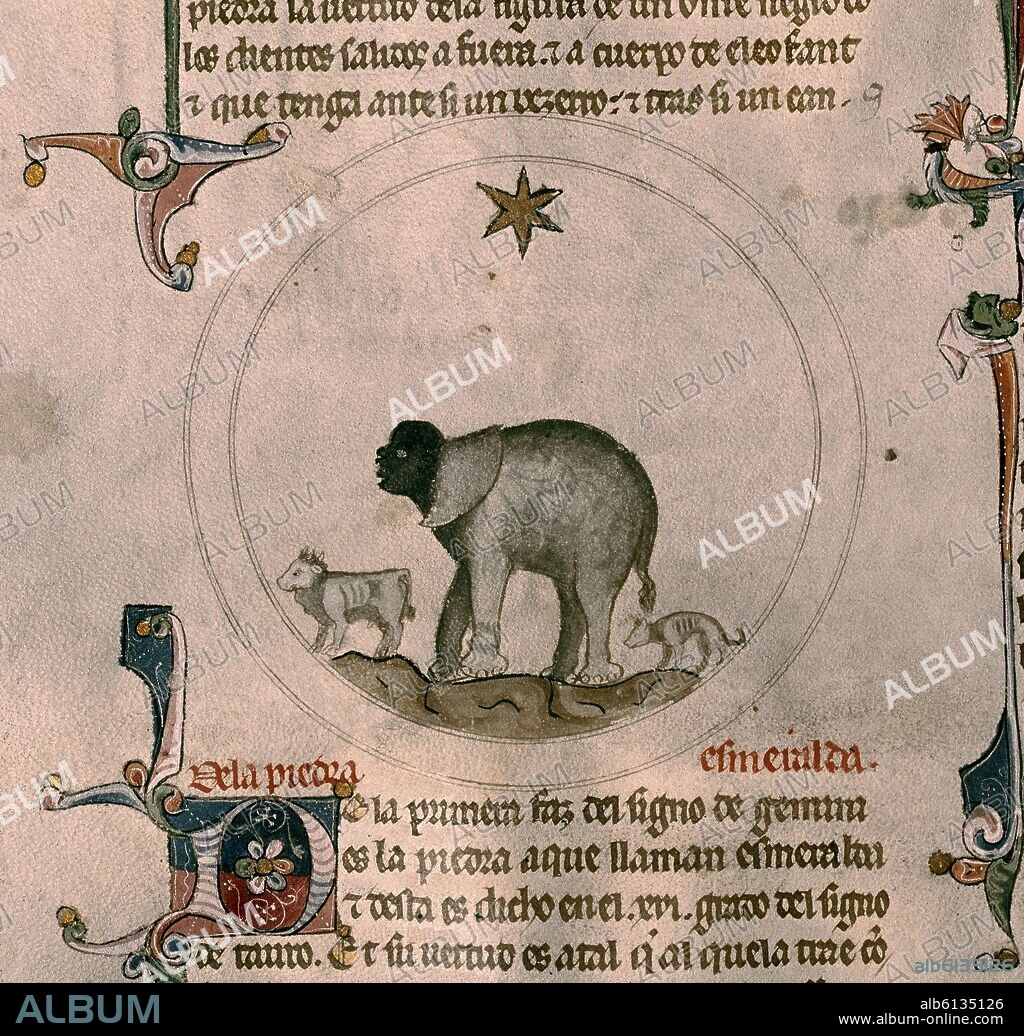 piedra la uertud dela figura de un omne negro
los dientes salidos a fuera. ⁊ a cuerpo de eleofant
⁊ que tenga ante si un bezerro: ⁊ tras si un can.
Dela piedra esmeralda.
De la primera faz del signo de gemini
es la piedra aque llaman esmeralda
⁊ desta es dicho en el .xvi. grado del signo
de tauro. Et su uertud es atal q̃ al quela trae cõ
ALBUM
alb6135126
ALBUM
alb6135126
www.album-online.com